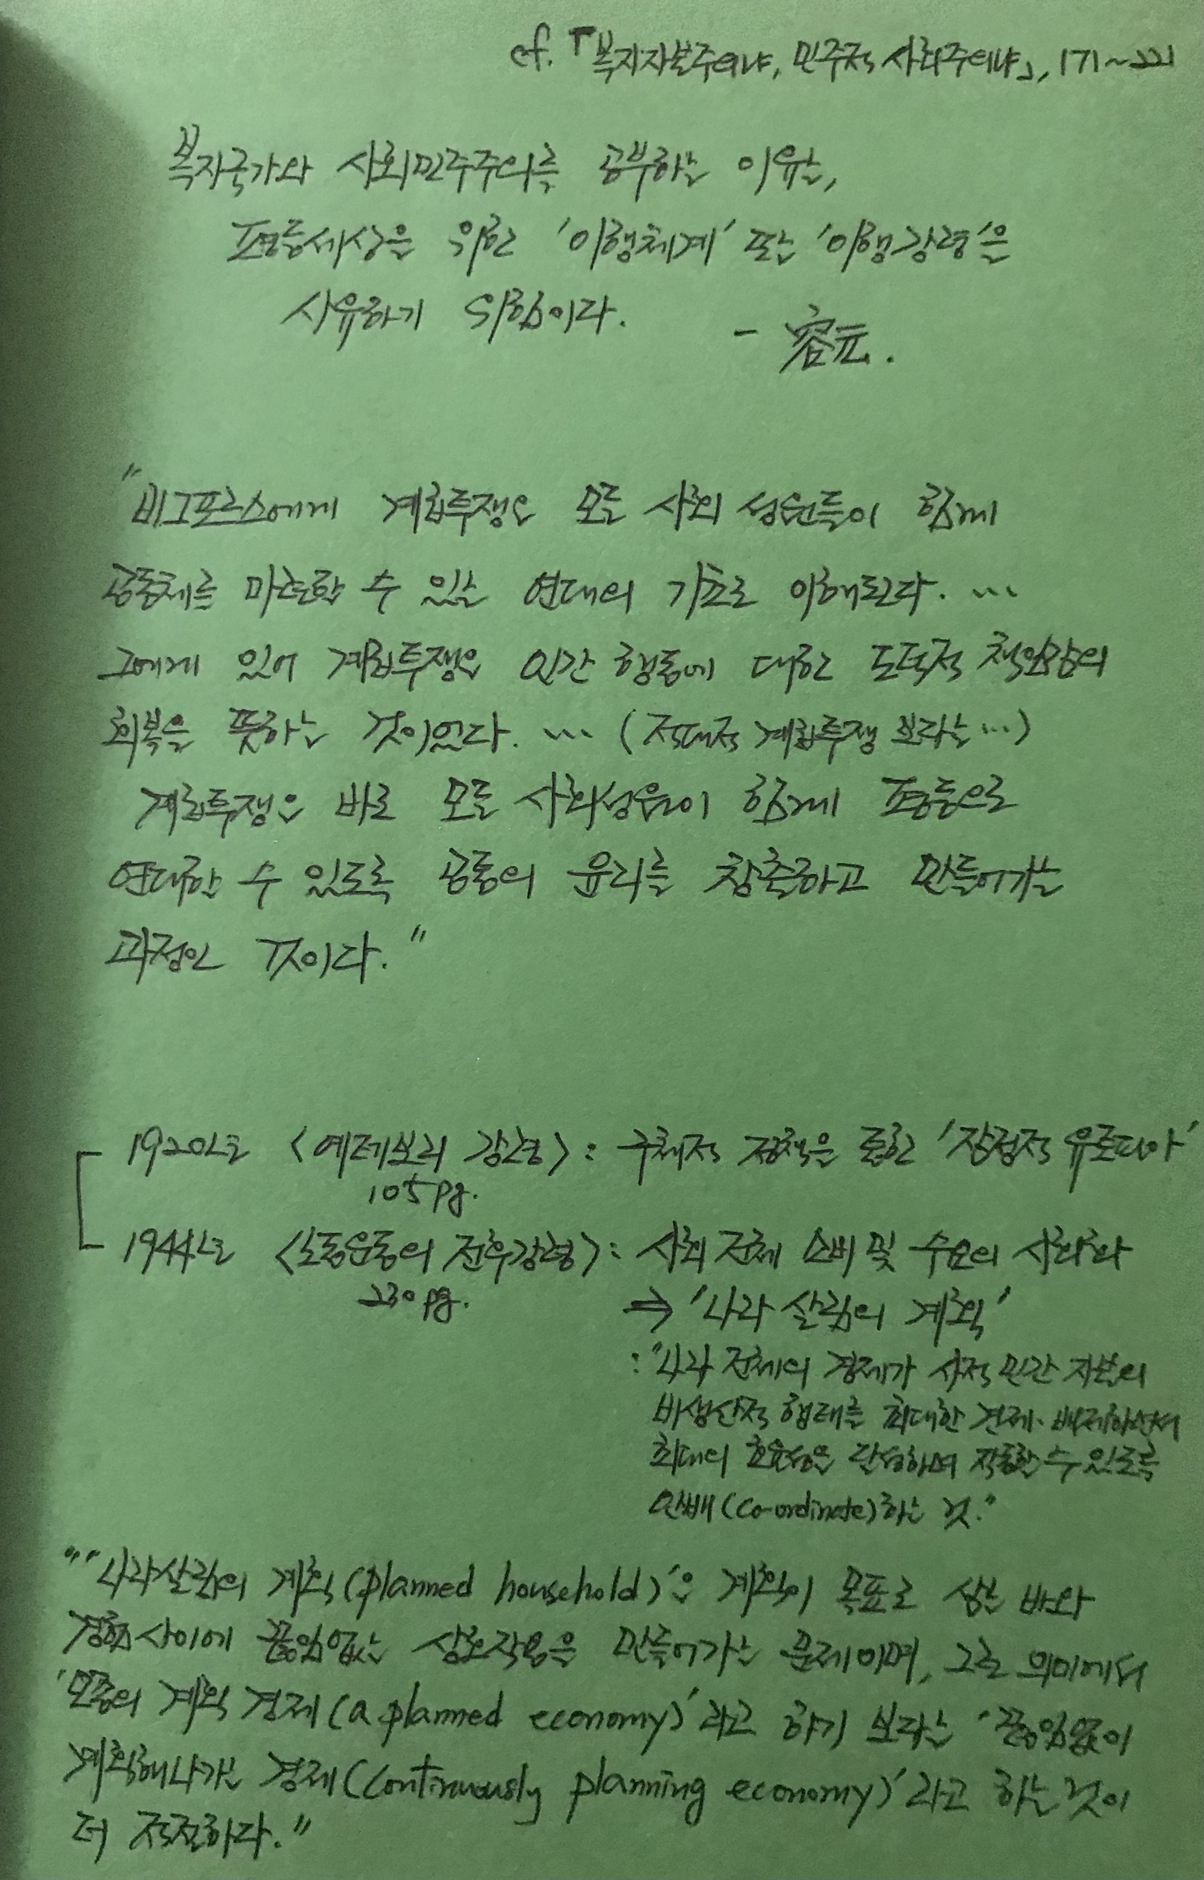 cf. 「복지자본주의냐, 민주적 사회주의냐」, 171~221
복지국가와 사회민주주의를 공부하는 이유는,
평등세상을 위한 '이행체계' 또는 '이행강령'은
사유하기 위함이다.
- 容元.
"비그포르스에게 계급투쟁은 모든 사회 성원들이 함께
공동체를 마련할 수 있는 연대의 기초로 이해된다. ...
그에게 있어 계급투쟁은 인간 행동에 대한 도덕적 책임감의
회복을 뜻하는 것이었다. ... (적대적 계급투쟁 보다는...)
계급투쟁은 바로 모든 사회성원이 함께 평등으로
연대할 수 있도록 공통의 윤리를 창출하고 만들어가는
과정인 것이다."
1920년 <예테보리 강령> : 구체적 정책을 통한 '잠정적 유토피아'
105pg.
1944년 <노동운동의 전후강령> : 사회 전체 소비 및 수요의 사회화
230pg.
⇒ '나라 살림의 계획'
: "나라 전체의 경제가 사적 민간 자본의
비생산적 행태를 최대한 견제·배제하면서
최대의 효율성을 달성하며 작동할 수 있도록
안배(co-ordinate)하는 것."
"'나라살림의 계획(planned household)'은 계획이 목표로 삼는 바와
경험 사이에 끊임없는 상호작용을 만들어가는 문제이며, 그런 의미에서
'모종의 계획 경제(a planned economy)'라고 하기 보다는 '끊임없이
계획해나가는 경제(continuously planning economy)'라고 하는 것이
더 적절하다."